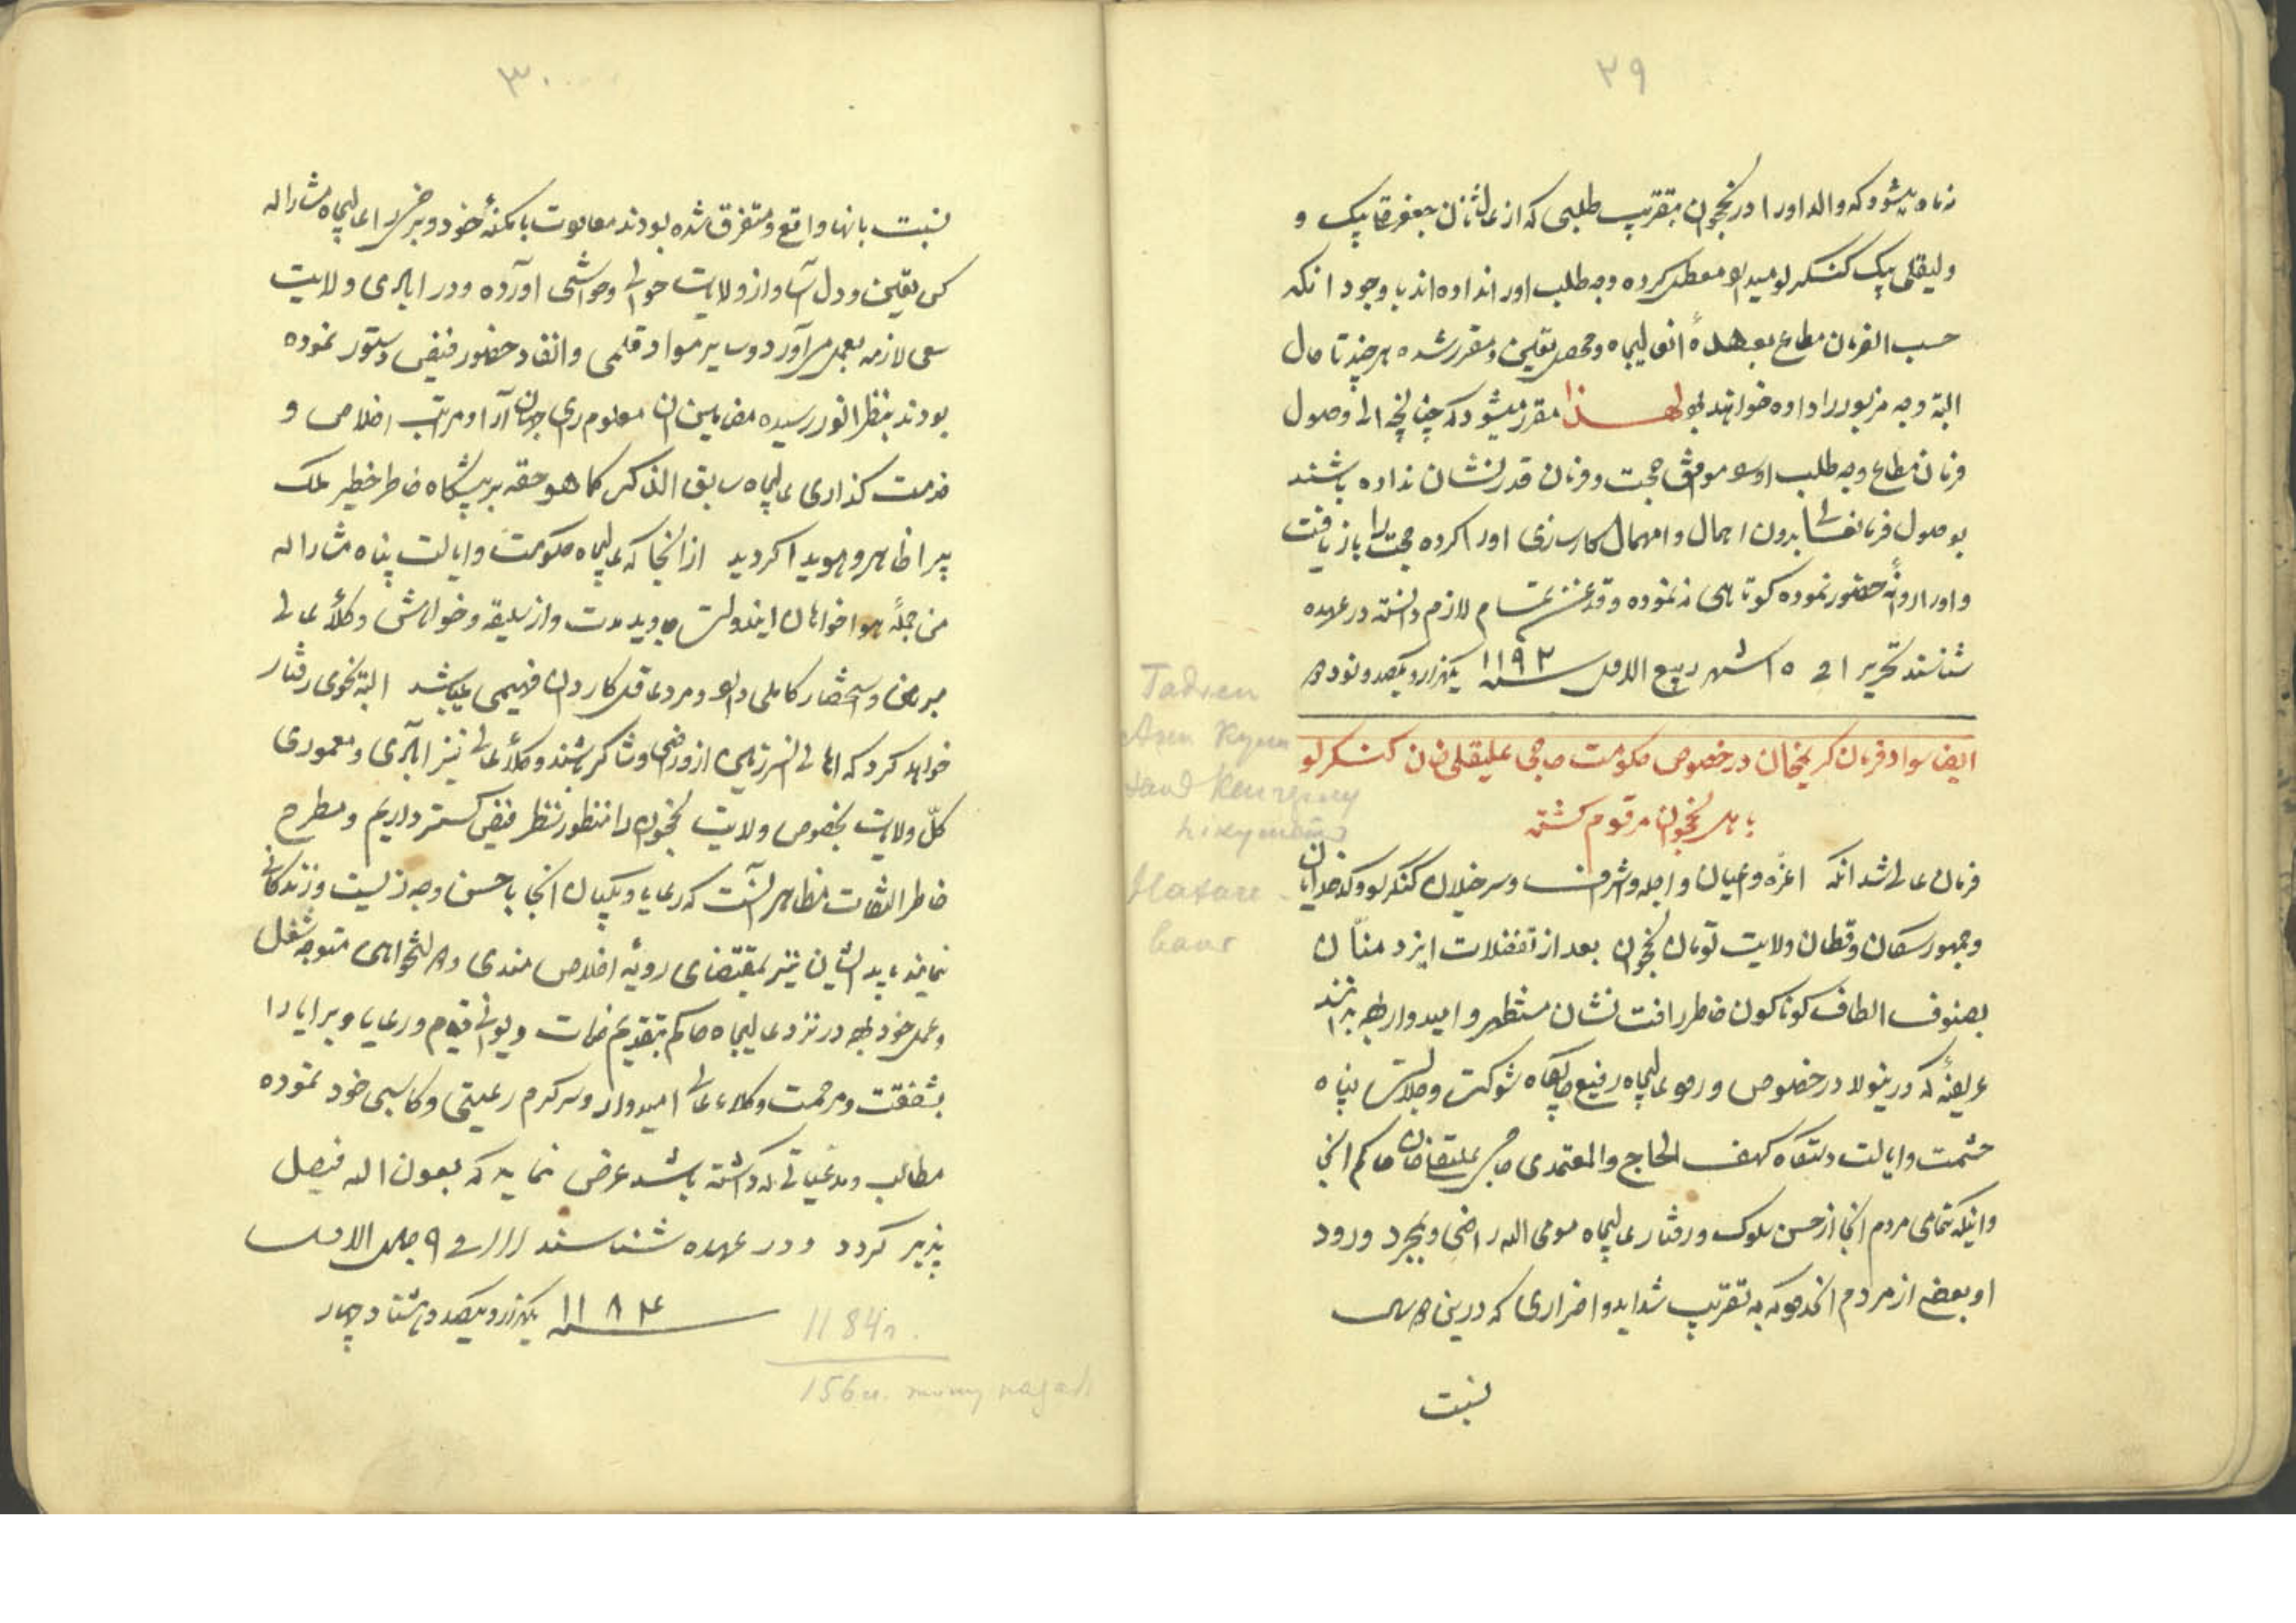 ۲۹
میشود که والد اورا در نخجوان بتقریب طلبی که از عالیشان جعفرقلی بیک و
ولیقلی بیک کنگرلو معطل کرده وجه طلب اورا نداده اند با وجود آنکه
حسب الفرمان مطاع بعهدهٔ انعالیجاه و محصل تعیین و مقرر شده هر چند تا حال
البته وجه مزبور را داده خواهند بود لهذا مقرر میشود که چنانچه الی وصول
فرمان مطاع وجه طلب اورا موافق حجت و فرمان قدر نشان نداده باشند
بوصول فرمان بدون اهمال و امهال کارسازی اورا کرده حجت را بازیافت
و اورا روانهٔ حضور نموده کوتاهی ننموده و قدغن تمام لازم دانسته در عهده
شناسند تحریرا فی ۱۵ شهر ربیع الاول سنه ۱۱۹۲ یکهزار و یکصد و نود
ایضا سواد فرمان کریمخان در خصوص حکومت حاجی علیقلیخان کنگرلو
باهل نخجوان مرقوم گشته
فرمان عالی شد آنکه اعزه و اعیان و اجله و اشراف و سرخیلان کنگرلو و کدخدایان
و جمهور سکان و قطان ولایت تومان نخجوان بعد از تفضلات ایزد منان
بصنوف الطاف کوناکون خاطر رافت نشان مستظهر و امیدوار بوده بدانند
عریضهٔ که درینولا در خصوص ورود عالیجاه رفیع جایگاه شوکت و جلالت پناه
حشمت و ایالت دستگاه کهف الحاج والمعتمدی حاجی علیقلیخان حاکم انجا
و اینکه تمامی مردم انجا از حسن سلوک و رفتار عالیجاه مومی الیه راضی و بمجرد ورود
او بعضی از مردم انحدود که به تقریب شداید و اضراری که درین
نسبت
Tadven
Asen
Hasare
۳۰
نسبت بانها واقع و متفرق شده بودند معاودت بامکنهٔ خود و برخی را عالیجاه مشارالیه
کس تعیین و دل آسا و از ولایات حوالی و حواشی آورده و در آبادی ولایت
سعی لازمه بعمل می آورد و سایر مواد قلمی و انفاد حضور فیض دستور نموده
بودند بنظر انور رسیده مضامین ان معلوم رای جهان آرا و مراتب اخلاص و
خدمت کذاری عالیجاه سابق الذکر کما هو حقه بر پیشگاه خاطر خطیر ملک
پیرا ظاهر و هویدا کردید از انجا که عالیجاه حکومت و ایالت پناه مشارالیه
من جملهٔ هواخواهان ایندولت جاوید مدت و از سلیقه و خواهش وکلاء عالی
خبردار و استحضار کاملی دارد و مرد عاقل کاردان فهیمی میباشد البته نحوی رفتار
خواهد کرد که اهالی انسرزمین ازو راضی و شاکر باشند و وکلاء عالی نیز آبادی و معموری
کلّ ولایات بخصوص ولایت نخجوان را منظور نظر فیض کستر داریم و مطرح
خاطر التفات مظاهر آنست که رعایا و یکپایان انجا باحسن وجه زیست و زندکانی
نمایند باید ایشان نیز بمقتضای رویهٔ اخلاص مندی و دولتخواهی متوجه شغل
و عمل خود بوده در نزد عالیجاه حاکم بتقدیم خدمات دیوانی قیام و رعایا و برایا را
بشفقت و مرحمت وکلاء عالی امیدوار و سرکرم رعیتی و کاسبی خود نموده
مطالب و مدعیاتی که داشته باشند عرض نماید که بعون الله فیصل
پذیر کردد و در عهده شناسند فی ۹ جمادی الاول
سنه ۱۱۸۴ یکهزار و یکصد و هشتاد و چهار
1184